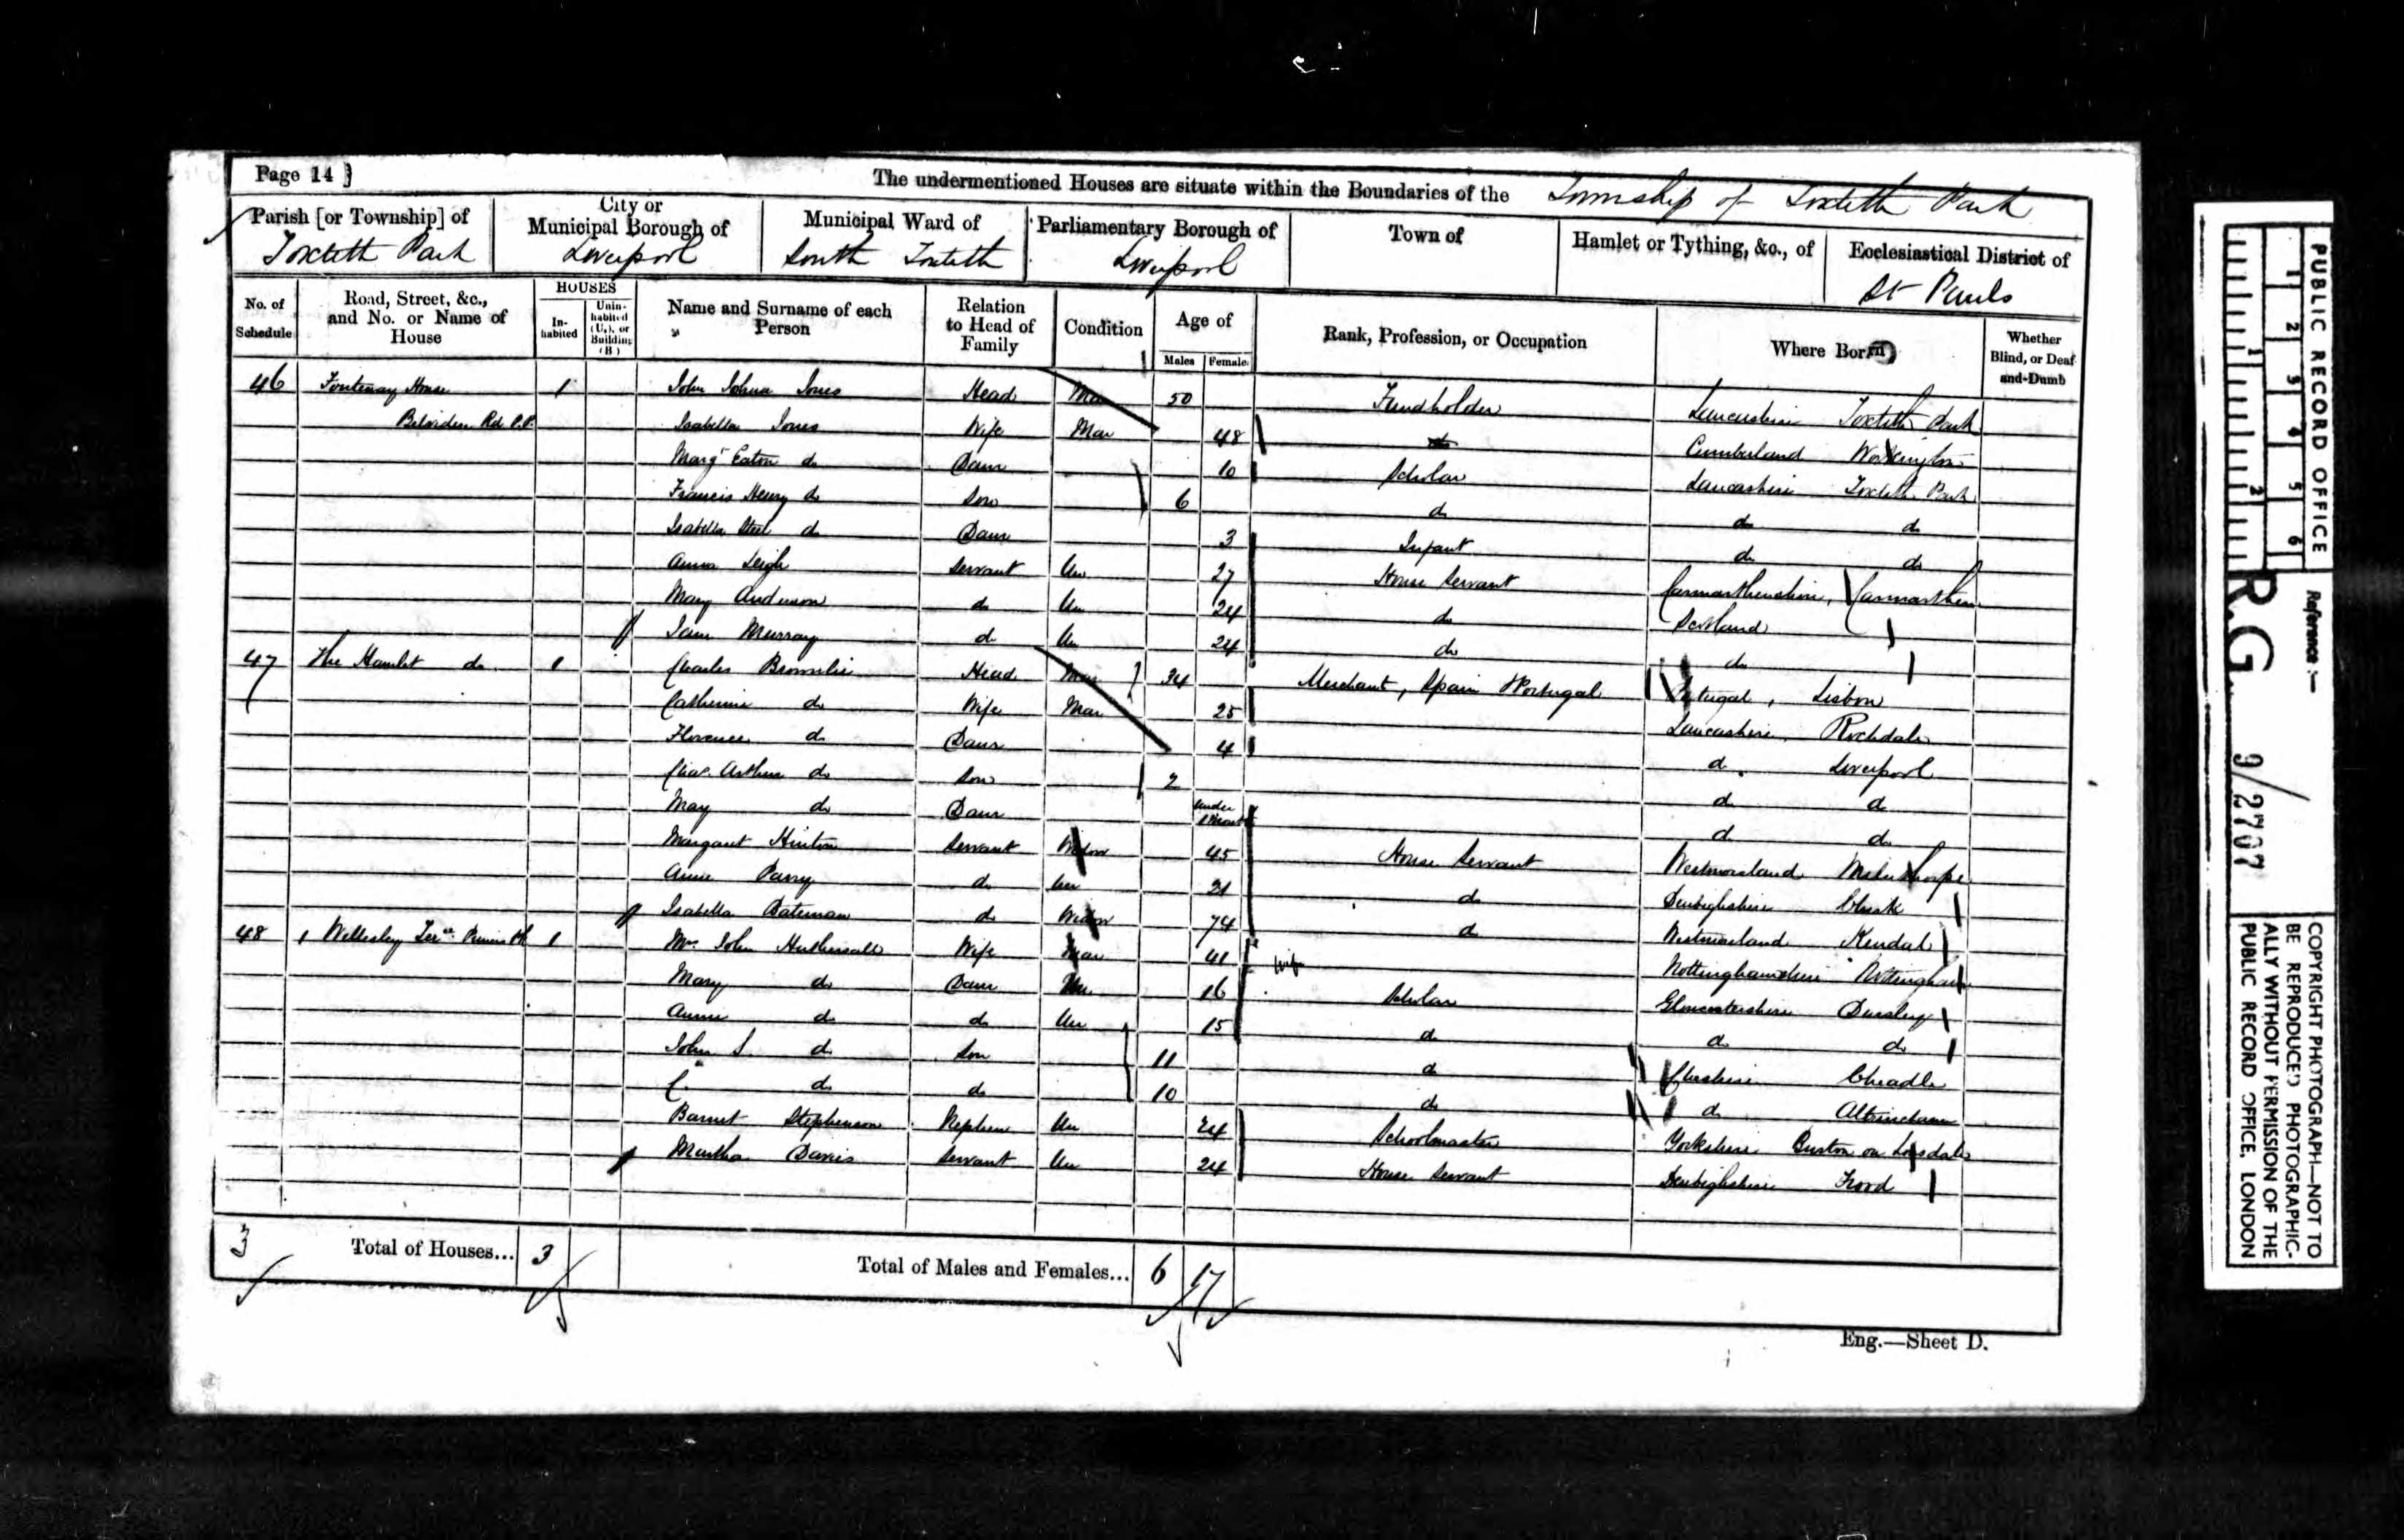 Page 14 }
The undermentioned Houses are situate within the Boundaries of the Township of Toxteth Park
Parish [or Township] of Toxteth Park
City or Municipal Borough of Liverpool
Municipal Ward of South Toxteth
Parliamentary Borough of Liverpool
Town of
Hamlet or Tything, &c., of
Ecclesiastical District of St Pauls
No. of Schedule
Road, Street, &c., and No. or Name of House
HOUSES
In-habited
Unin-habited (U.), or Building (B)
Name and Surname of each Person
Relation to Head of Family
Condition
Age of
Males Females
Rank, Profession, or Occupation
Where Born
Whether Blind, or Deaf-and-Dumb
46 Fontenay House 1 John Joshua Jones Head Mar 50 Fundholder Lancashire Toxteth Park
Belvidere Rd P.P. Isabella Jones Wife Mar 48 do Cumberland Workington
Margt Eaton do Daur 10 Scholar Lancashire Toxteth Park
Francis Henry do Son 6 do do do
Isabella Steel do Daur 3 Infant do do
Anna Leigh Servant Un 27 House Servant Carmarthenshire, Carmarthen
Mary Anderson do Un 24 do Scotland
Jane Murray do Un 24 do do
47 The Hamlet do 1 Charles Head Mar 34 Merchant, Spain & Portugal Portugal, Lisbon
Catherine do Wife Mar 25 Lancashire Rochdale
Florence do Daur 4 do Liverpool
Chas. Arthur do Son 2 do do
May do Daur under 1 Month do do
Margaret Hinton Servant Widow 45 House Servant Westmoreland
Anne Parry do Un 21 do Denbighshire Chirk
Isabella Bateman do Widow 74 do Westmoreland Kendal
48 1 Wellesley Terce Princes Pk 1 Mrs John Wife Mar 41 Wife Nottinghamshire Nottingham
Mary do Daur Un 16 Scholar Gloucestershire Dursley
Annie do do Un 15 do do do
John S. do Son 11 do Cheshire Cheadle
C. do do 10 do do Altrincham
Barnet Stephenson Nephew Un 24 Schoolmaster Yorkshire Burton on Lonsdale
Martha Davies Servant Un 24 House Servant Denbighshire
3 Total of Houses... 3 Total of Males and Females... 6 17
Eng.—Sheet D.
PUBLIC RECORD OFFICE
1 2 3 4 5 6
1 2
Reference :—
R.G. 9/2707
COPYRIGHT PHOTOGRAPH—NOT TO
BE REPRODUCED PHOTOGRAPHIC-
ALLY WITHOUT PERMISSION OF THE
PUBLIC RECORD OFFICE, LONDON